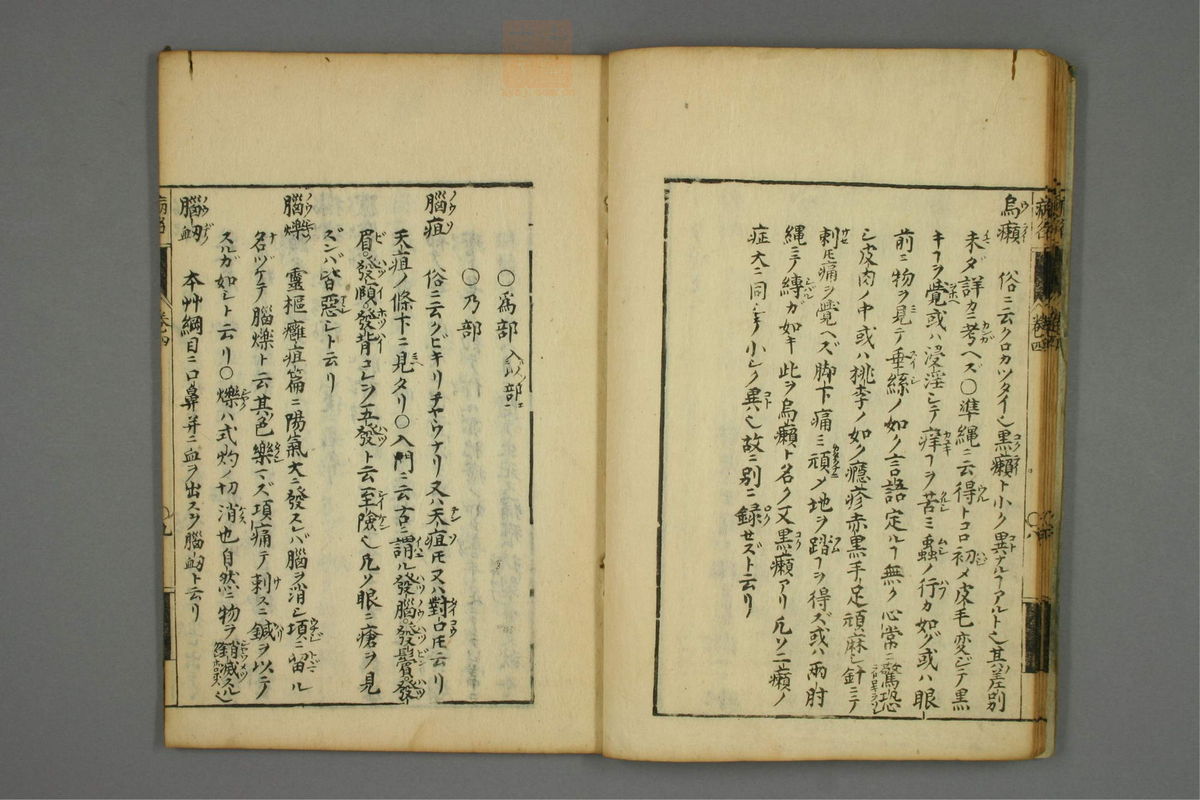 烏癩 俗ニ云クロカツタイ也黒癩ト小ク異ナルヿアルト也其差別
未ダ詳カニ考ヘズ〇準縄ニ云得トコロ初メ皮毛変ジテ黒
キヿヲ覚或ハ浸淫シテ痒ヿヲ苦ミ蟲ノ行カ如グ或ハ眼
前ニ物ヲ見テ垂絲ノ如ク言語定ルヿ無ク心常ニ驚恐
シ皮肉ノ中或ハ桃李ノ如ク癮疹赤黒手足頑麻シ針ニテ
刺𪜈痛ヲ覺ヘズ脚下痛ミ頑メ地ヲ踏ヿヲ得ズ或ハ両肘
縄ニテ縛カ如キ此ヲ烏癩ト名ク又黒癩アリ凡ソ二癩ノ
症大ニ同シテ小シク異ハ也故ニ別ニ録セズト云リ
〇爲部
〇乃部
腦疽 俗ニ云クビキリチヤウナリ又ハ天疽𪜈又ハ對口𪜈云リ
天疽ノ條下ニ見タリ〇入門ニ云古ニ謂ル發腦發鬢發
眉發頤發背コレヲ五發ト云至險也凡ソ眼ニ瘡ヲ見
ズンバ皆惡シト云リ
腦爍 靈樞癰疽篇ニ陽氣大ニ發スレバ腦ヲ消シ項ニ留ル
名ヅケテ腦爍ト云其色樂マズ項痛テ刺スニ鍼ヲ以テ
スルガ如シト云リ〇爍ハ式灼ノ切消也自然ニ物ヲ銷滅スル也
腦衄 本艸綱目ニ口鼻并ニ血ヲ出スヲ腦衄ト云リ